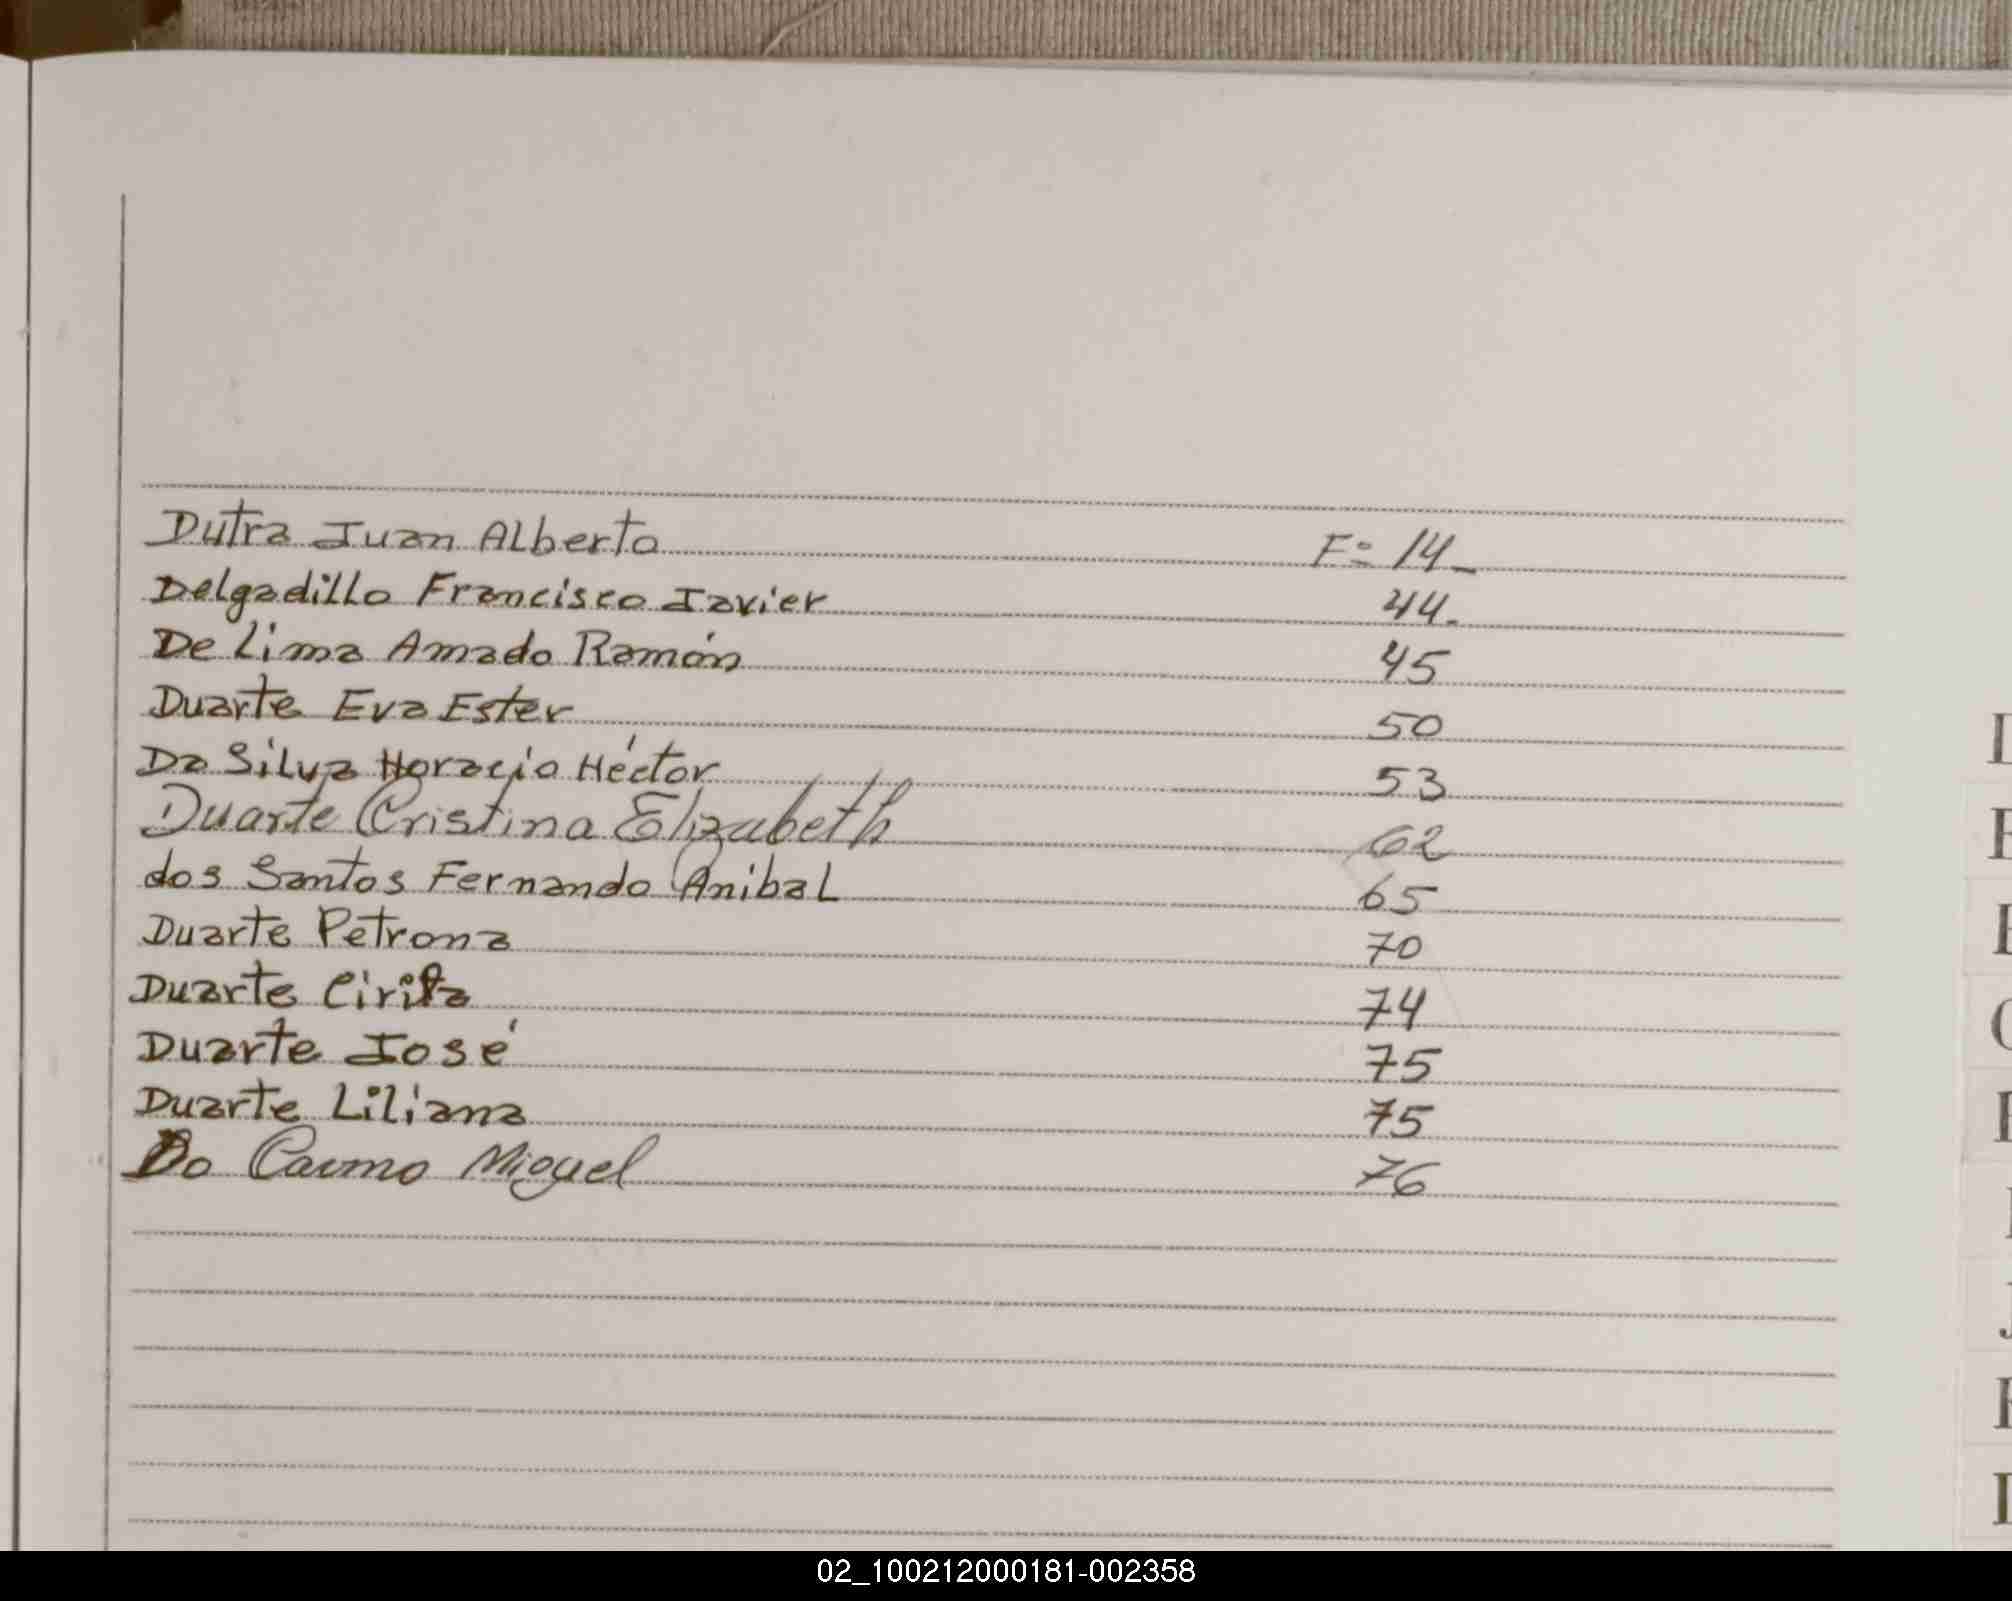 Dutra Juan Alberto F= 14_
Delgadillo Francisco Javier 44.
De Lima Amado Ramón 45
Duarte Eva Ester 50
Da Silva Horacio Héctor 53
Duarte Cristina Elizabeth 62
dos Santos Fernando Anibal 65
Duarte Petrona 70
Duarte 74
Duarte José 75
Duarte Liliana 75
Do Carmo Miguel 76
02_100212000181-002358